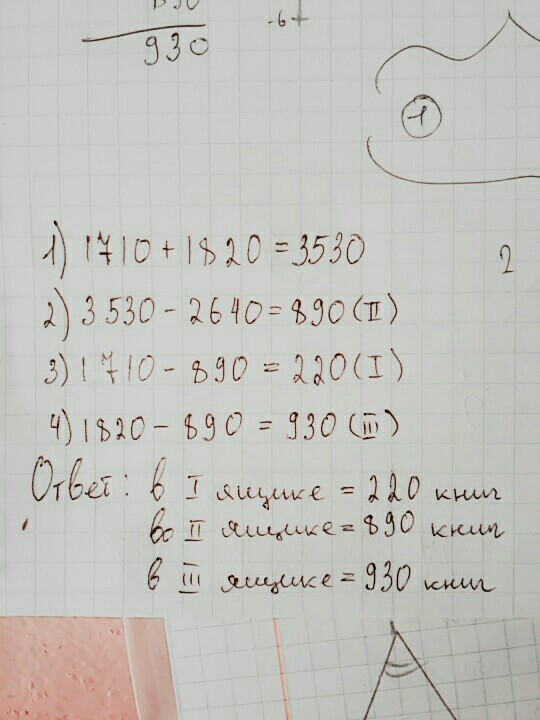 930
-6
1
1) 1710 + 1820 = 3530
2
2) 3530 - 2640 = 890 (II)
3) 1710 - 890 = 220 (I)
4) 1820 - 890 = 930 (III)
Ответ: в I ящике = 220 книг
во II ящике = 890 книг
в III ящике = 930 книг